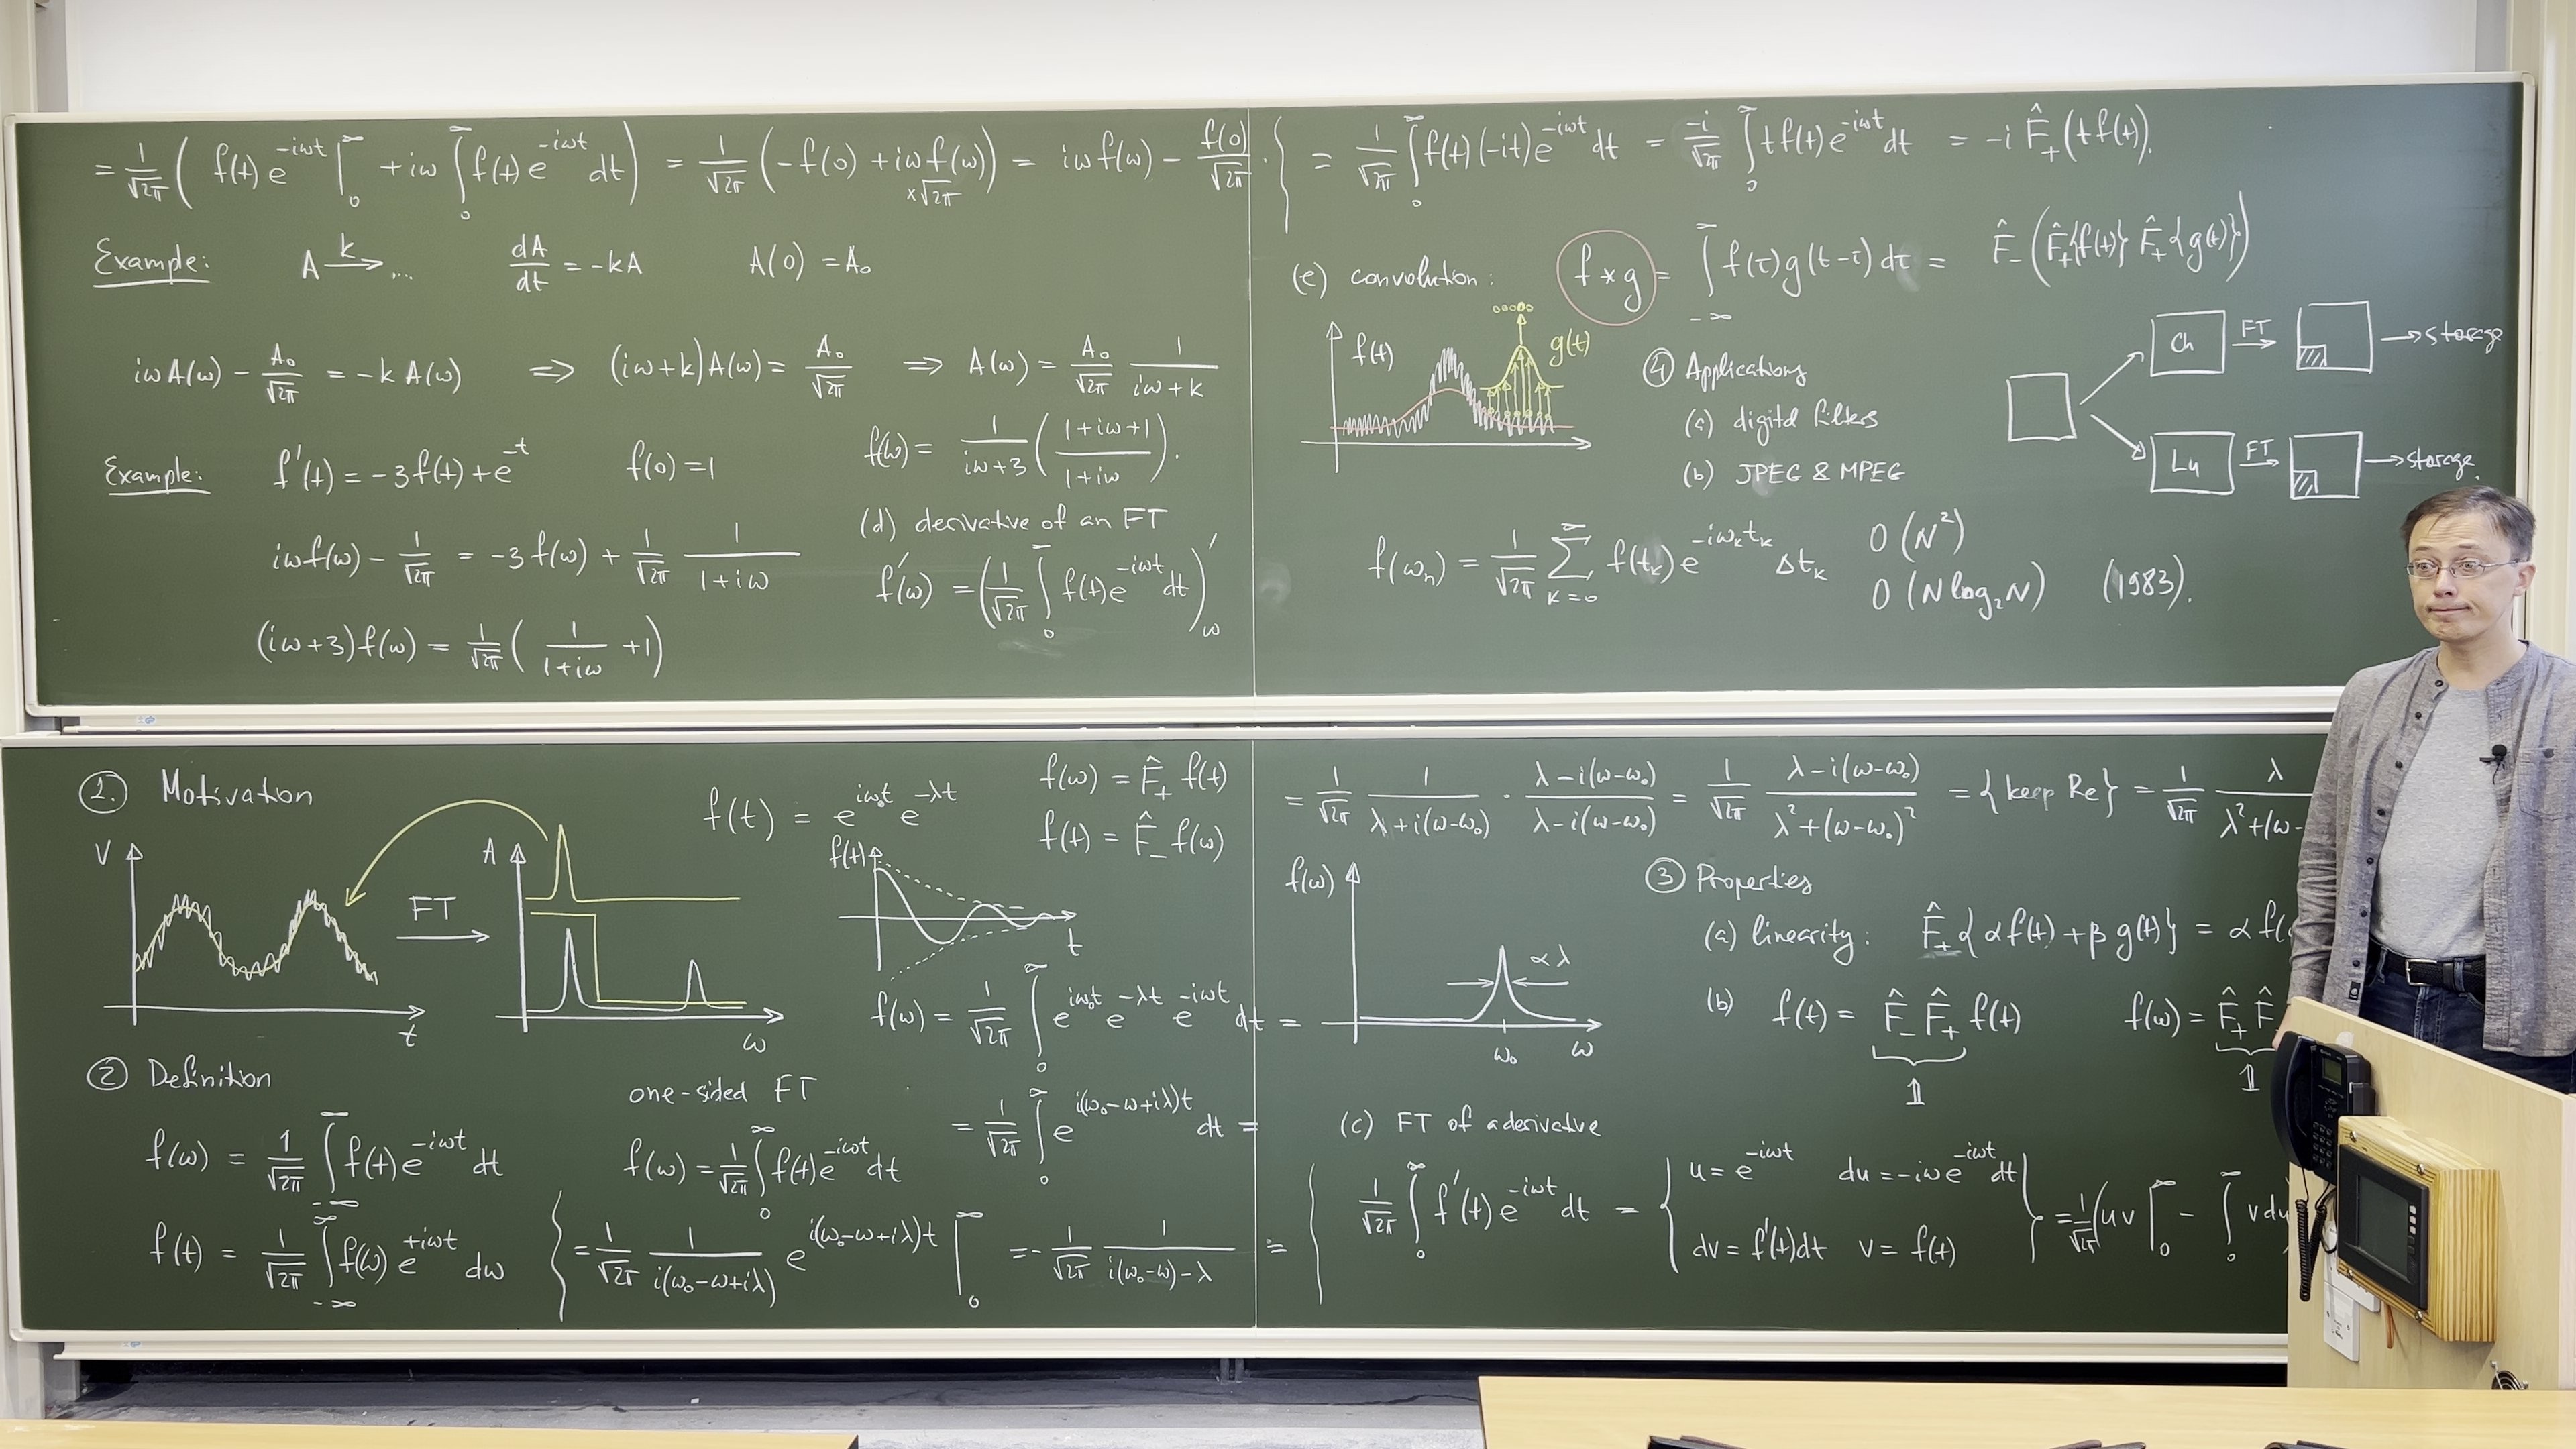 = 1/√2π ( f(t) e^{-iωt} |_0^∞ + iω ∫_0^∞ f(t) e^{-iωt} dt ) = 1/√2π ( -f(0) + iω f(ω) ×√2π ) = iω f(ω) - f(0)/√2π .
Example: A →^k ... dA/dt = -kA A(0) = A₀
iω A(ω) - A₀/√2π = -k A(ω) ⇒ (iω+k) A(ω) = A₀/√2π ⇒ A(ω) = A₀/√2π 1/(iω+k)
Example: f'(t) = -3f(t) + e^{-t} f(0) = 1
iωf(ω) - 1/√2π = -3f(ω) + 1/√2π 1/(1+iω)
(iω+3)f(ω) = 1/√2π ( 1/(1+iω) + 1 )
f(ω) = 1/(iω+3) ( (1+iω+1)/(1+iω) ).
(d) derivative of an FT
f'(ω) = ( 1/√2π ∫_0^∞ f(t) e^{-iωt} dt )'_ω
= 1/√2π ∫_0^∞ f(t) (-it) e^{-iωt} dt = -i/√2π ∫_0^∞ t f(t) e^{-iωt} dt = -i F̂₊ (t f(t)).
(e) convolution: f * g = ∫_{-∞}^∞ f(τ) g(t-τ) dτ = F̂₋ ( F̂₊{f(t)} F̂₊{g(t)} )
f(t) g(t)
④ Applications
(a) digital filters
(b) JPEG & MPEG
Ch FT → storage
Lu FT → storage.
f(ω_n) = 1/√2π Σ_{k=0}^∞ f(t_k) e^{-iω_k t_k} Δt_k O(N²)
O(N log₂ N) (1983).
1. Motivation
V t FT A ω
f(t) = e^{iω₀t} e^{-λt}
f(ω) = F̂₊ f(t)
f(t) = F̂₋ f(ω)
f(t) t
f(ω) = 1/√2π ∫_0^∞ e^{iω₀t} e^{-λt} e^{-iωt} dt =
= 1/√2π ∫_0^∞ e^{i(ω₀-ω+iλ)t} dt =
② Definition
f(ω) = 1/√2π ∫_{-∞}^∞ f(t) e^{-iωt} dt
f(t) = 1/√2π ∫_{-∞}^∞ f(ω) e^{+iωt} dω
one-sided FT
f(ω) = 1/√2π ∫_0^∞ f(t) e^{-iωt} dt
= 1/√2π 1/(i(ω₀-ω+iλ)) e^{i(ω₀-ω+iλ)t} |_0^∞ = - 1/√2π 1/(i(ω₀-ω)-λ) =
= 1/√2π 1/(λ+i(ω-ω₀)) · (λ-i(ω-ω₀))/(λ-i(ω-ω₀)) = 1/√2π (λ-i(ω-ω₀))/(λ²+(ω-ω₀)²) = {keep Re} = 1/√2π λ/(λ²+(ω-
f(ω) ∝ λ ω₀ ω
③ Properties
(a) linearity: F̂₊{αf(t)+βg(t)} = αf(
(b) f(t) = F̂₋ F̂₊ f(t) f(ω) = F̂₊ F̂
𝟙 𝟙
(c) FT of a derivative
1/√2π ∫_0^∞ f'(t) e^{-iωt} dt = { u = e^{-iωt} du = -iωe^{-iωt} dt
dv = f'(t)dt v = f(t) } = 1/√2π ( uv |_0^∞ - ∫_0^∞ v du